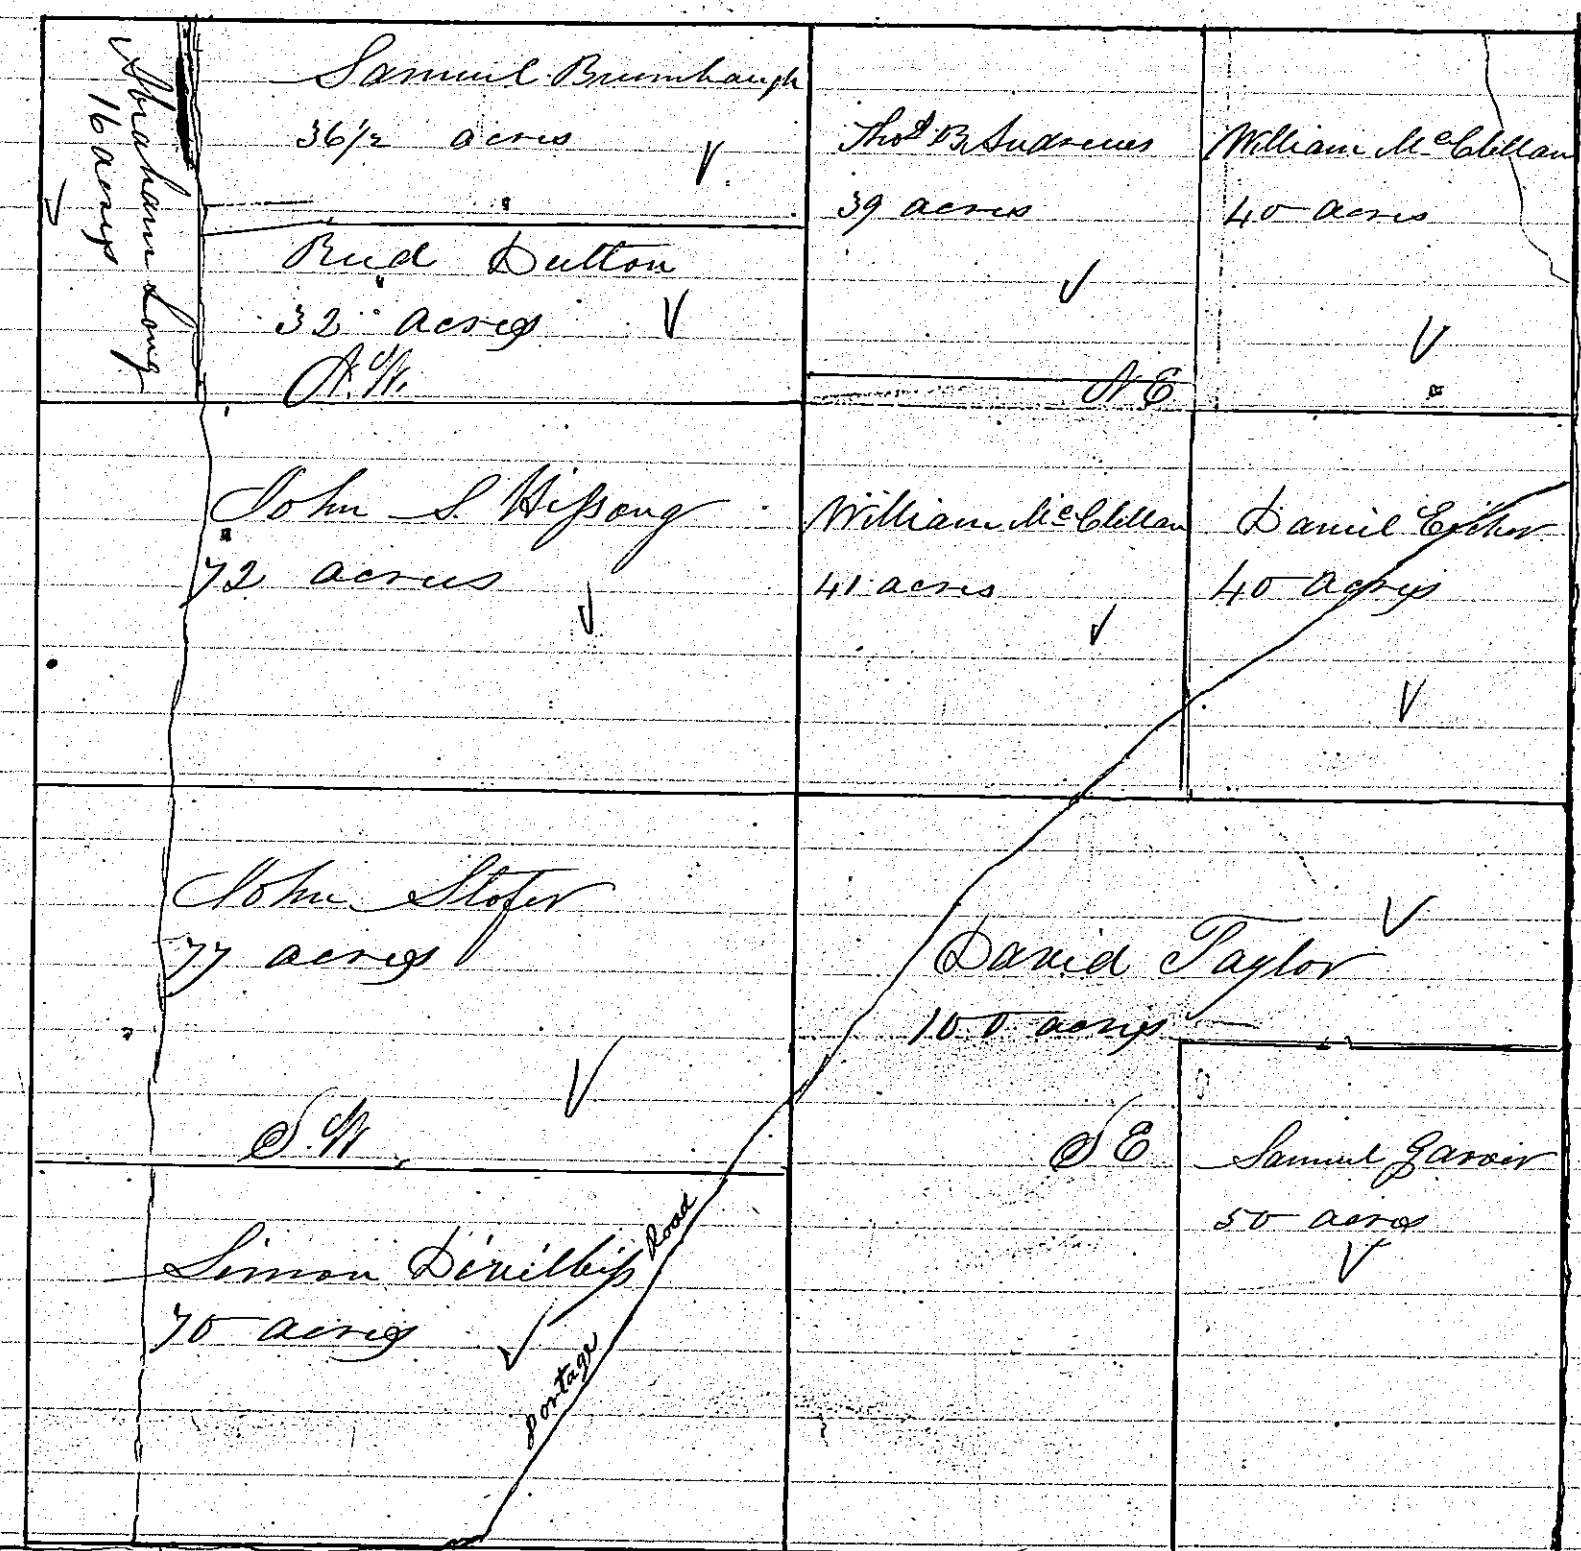 Abraham Long
16 acres
Samuel Brumbaugh
36 1/2 acres
Thos B. Andrews
39 acres
William McClellan
40 acres
Dutton
32 acres
N.W.
N E
John S. Hissong
72 acres
William McClellan
41 acres
Daniel
40 acres
John Stofer
77 acres
S.W.
David Taylor
100 acres
S E
Samuel Garver
50 acres
Simon Divilbiss
70 acres
portage Road